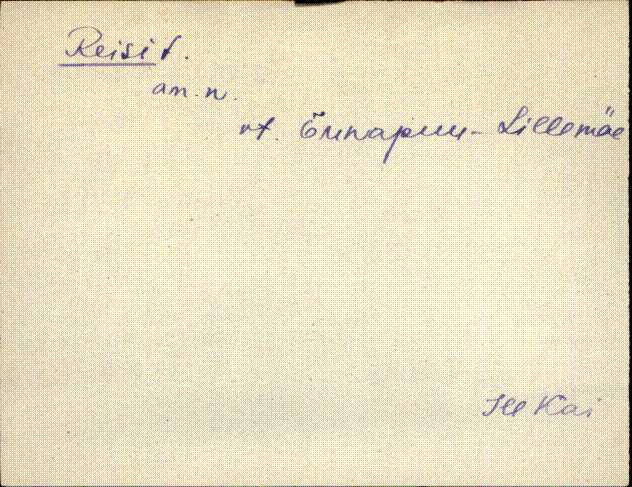 Reisi t.
an. n.
vt. Õunapuu - Lillemäe
Ill Kai